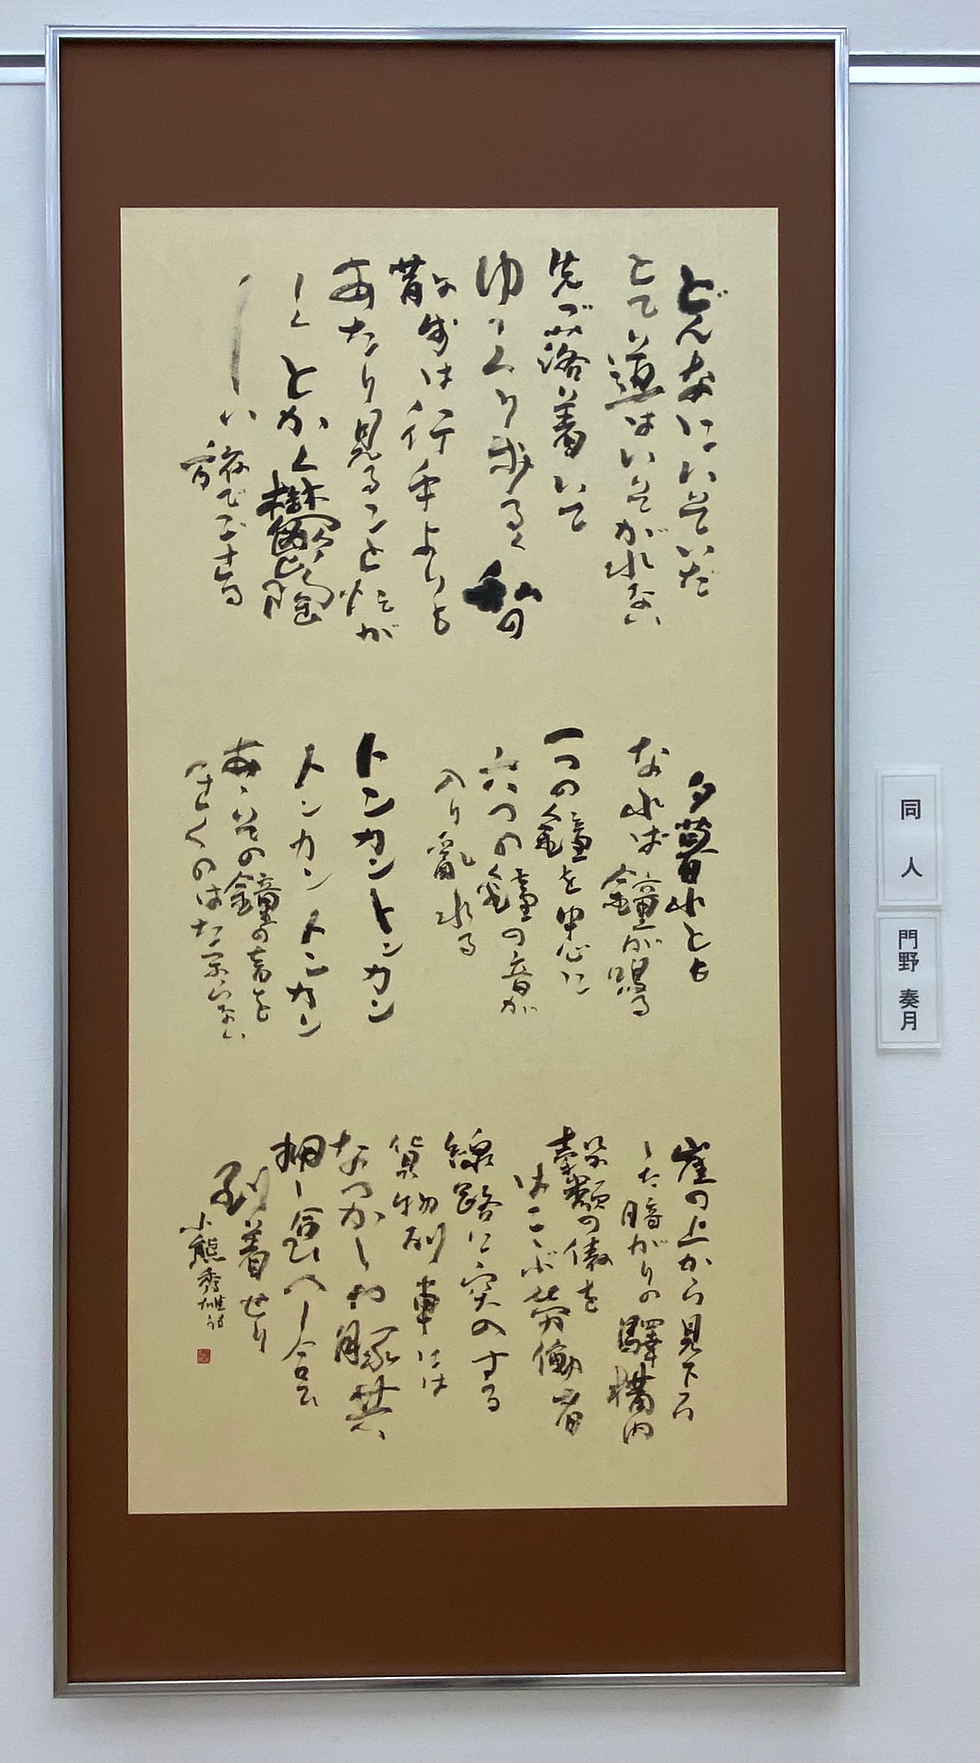 どんなにいそいだ
とて道はいそがれない
先づ落着いて
ゆつくり歩るく私の
散歩は行手よりも
あたり見ることに忙が
しくとかく機陶
しい夜でございます
夕暮れとも
なれば鐘が鳴る
一つの鐘を中心に
六つの鐘の音が
入り乱れる
トンカントンカン
トンカントンカン
あゝその鐘の音を
きくのはたまらない
崖の上から見下ろ
した暗がりの驛構内
線路に突入する
貨物列車には
なつかしや豚共
押し合ひへし合ひ
到着せり
小熊秀雄詩
同人
門野 奏月